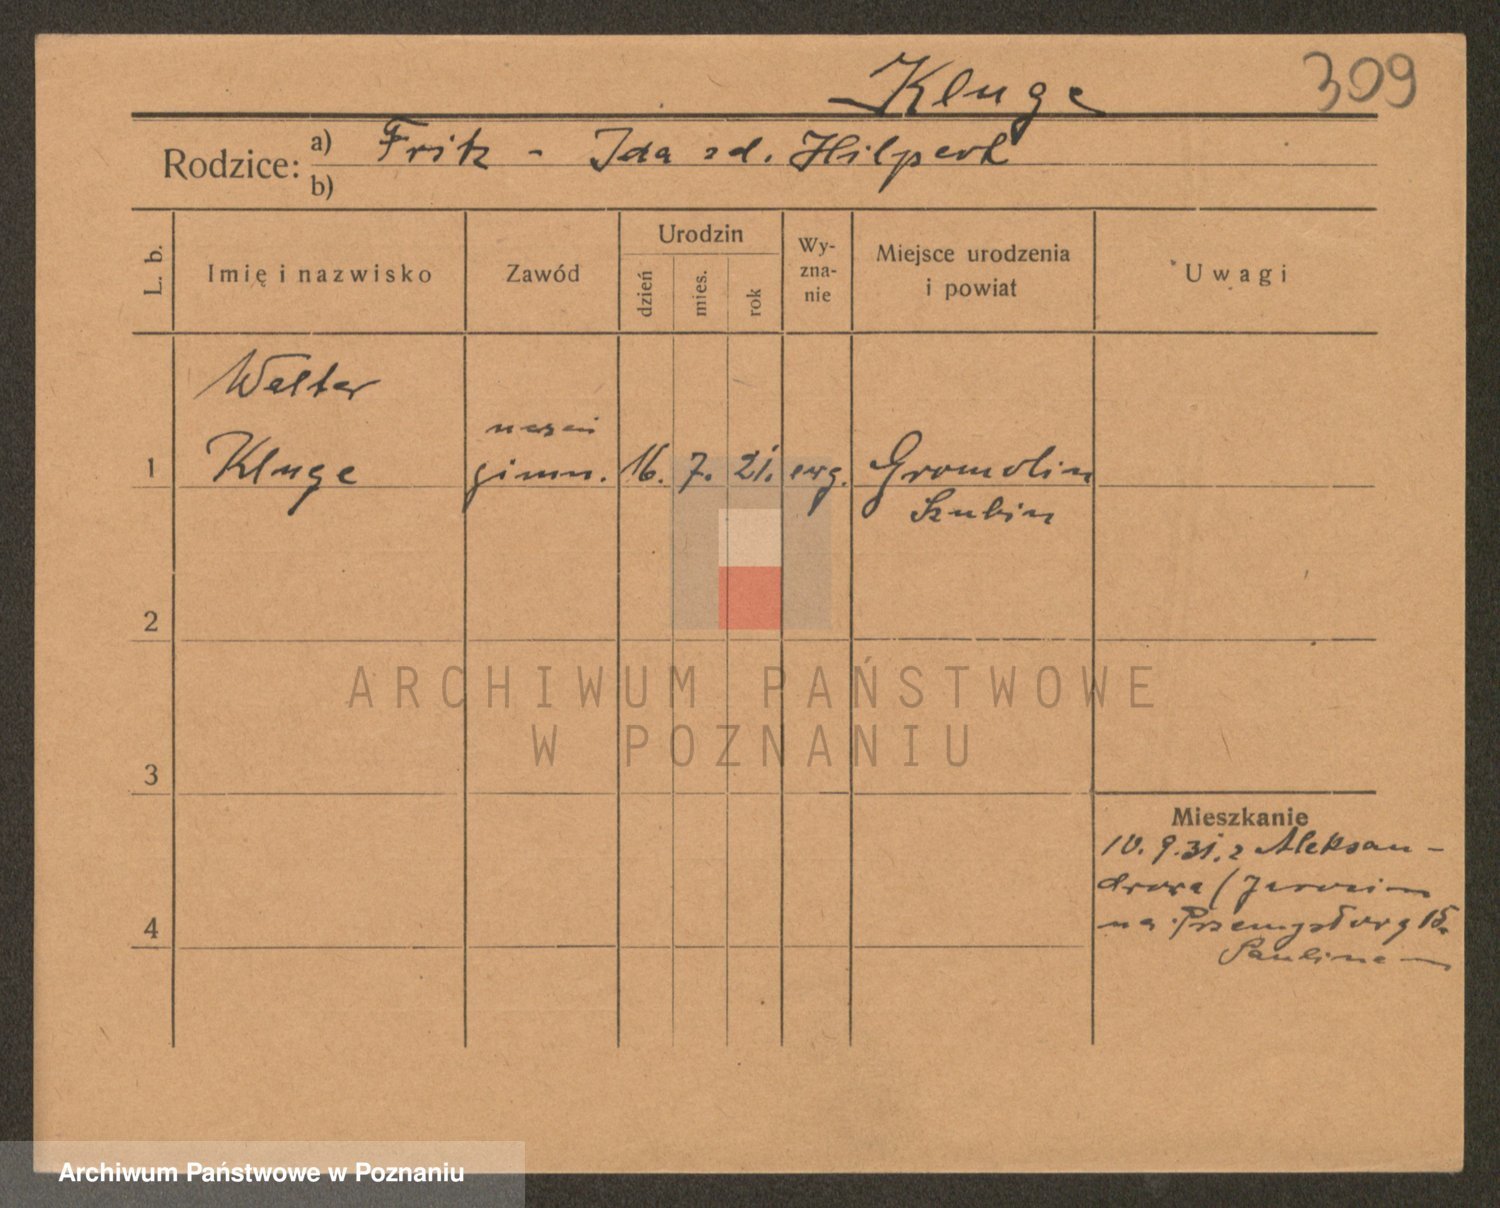 Kluge
309
Rodzice: a) Fritz - Ida zd. Hilpert
b)
L. b.
Imię i nazwisko
Zawód
Urodzin
dzień
mies.
rok
Wy-
zna-
nie
Miejsce urodzenia
i powiat
Uwagi
Walter
1 Kluge
uczeń
gimn.
16. 7. 21.
ewg.
Gromolin
Szubin
2
3
4
Mieszkanie
10. 9. 31. z Aleksan-
drowa / Jarocin
na Przemysłową 15.
ARCHIWUM PAŃSTWOWE
W POZNANIU
Archiwum Państwowe w Poznaniu